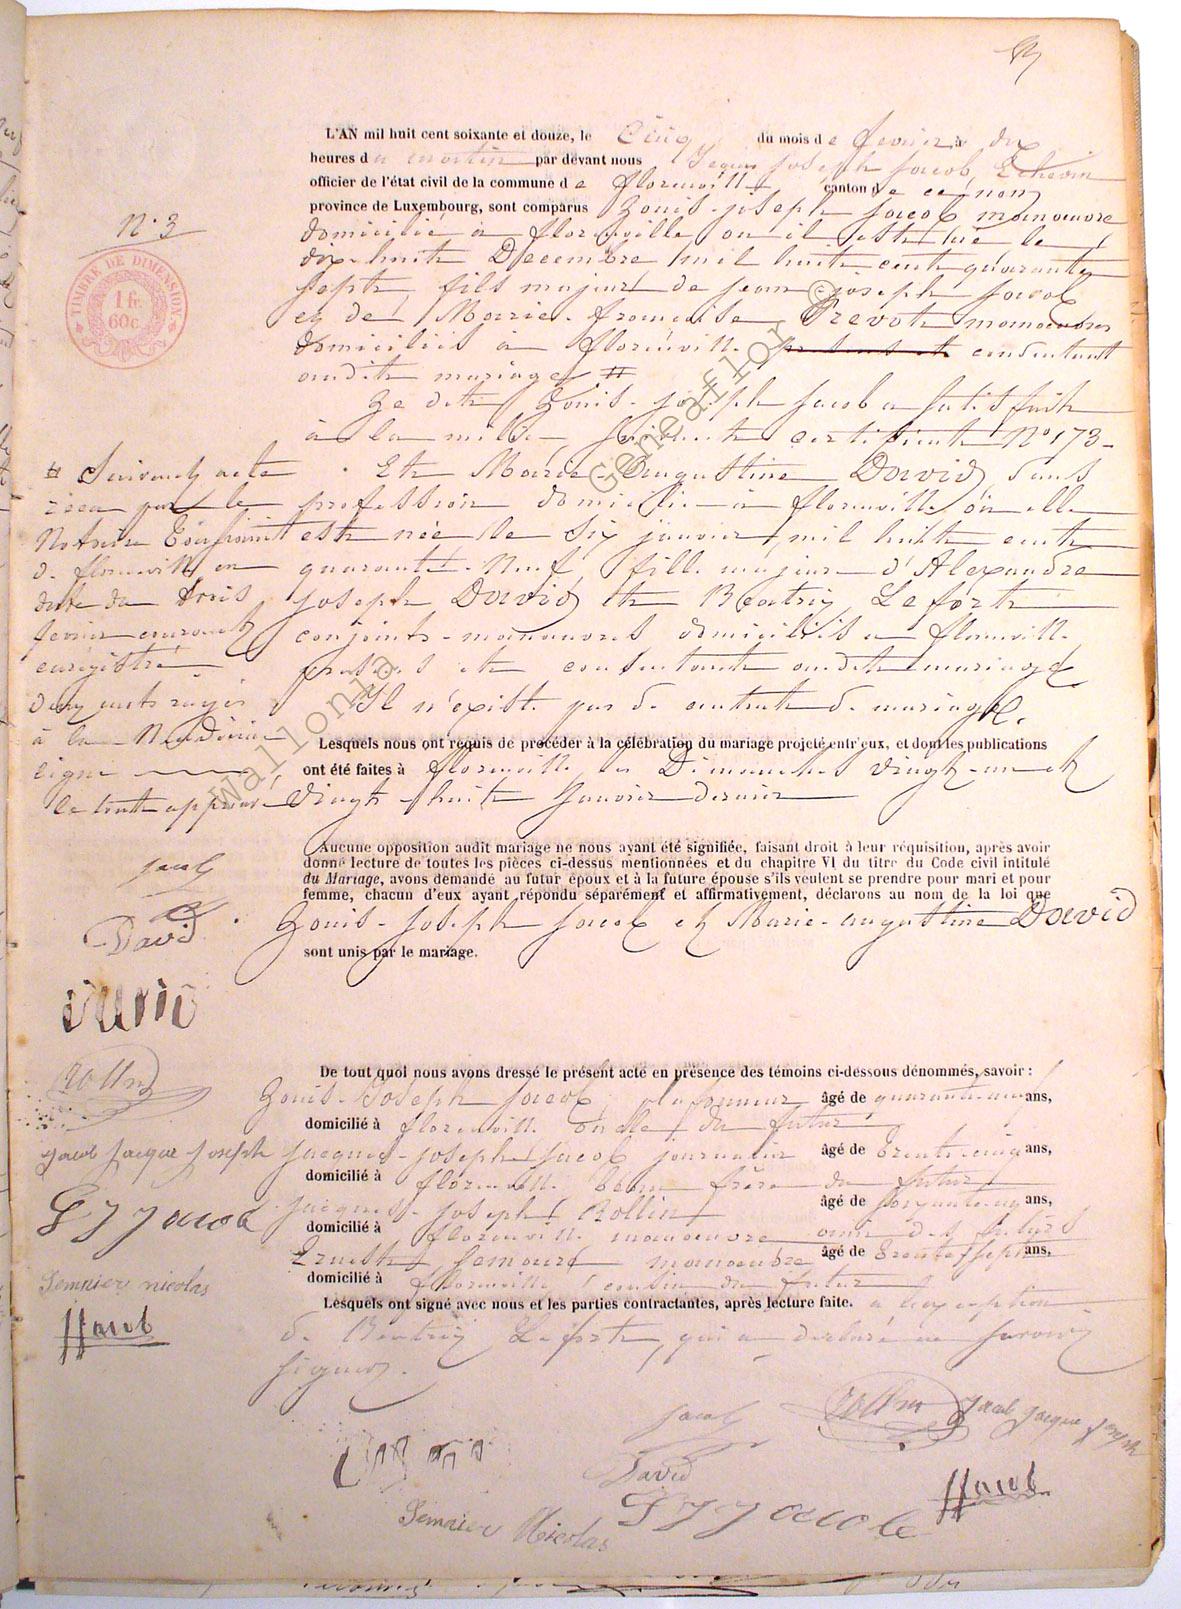 N° 3
TIMBRE DE DIMENSION
1 fr.
60c.
L'AN mil huit cent soixante et douze, le Cinq du mois de fevrier à dix
heures du matin par devant nous Jacques Joseph Jacob, Echevin
officier de l'état civil de la commune de florenville canton de ce nom
province de Luxembourg, sont comparus Louis-joseph Jacob manoeuvre
domicilié à florenville où il est né le
dix-huit Decembre mil huit cent quarante
sept, fils majeur de jean joseph Jacob
et de Marie-françoise Prevot manoeuvres
domiciliés à florenville présents et consentant
audit mariage #
Le dit Louis-joseph Jacob a satisfait
à la milice suivant certificat N° 173-
Et Marie Augustine David, sans
profession domiciliée à florenville où elle
est née le six janvier, mil huit cent
quarante-neuf fille majeure d'Alexandre
joseph David et Béatrix Lefort
conjoints-manoeuvres domiciliés à florenville
présents et consentant audit mariage
Il n'existe pas de contrat de mariage.
# Suivant acte
reçu par le
Notaire
de florenville en
date du trois
fevrier courant
enregistré
deux mots rayés
à la
ligne
le tout approuvé
Lesquels nous ont requis de procéder à la célébration du mariage projeté entr'eux, et dont les publications
ont été faites à florenville les Dimanches vingt-un et
vingt-huit Janvier dernier
Aucune opposition audit mariage ne nous ayant été signifiée, faisant droit à leur réquisition, après avoir
donné lecture de toutes les pièces ci-dessus mentionnées et du chapitre VI du titre du Code civil intitulé
du Mariage, avons demandé au futur époux et à la future épouse s'ils veulent se prendre pour mari et pour
femme, chacun d'eux ayant répondu séparément et affirmativement, déclarons au nom de la loi que
Louis-Joseph Jacob et Marie-augustine David
sont unis par le mariage.
Jacob
David
Rollin
Jacob Jacque Joseph
Jacob
Semaier nicolas
JJacob
De tout quoi nous avons dressé le présent acte en présence des témoins ci-dessous dénommés, savoir :
Louis-Joseph Jacob, plafonneur âgé de quarante-neuf ans,
domicilié à florenville oncle du futur
Jacques-joseph Jacob journalier âgé de trente-cinq ans,
domicilié à florenville beau frère du futur
Jacques-joseph Rollin âgé de ans,
domicilié à florenville manoeuvre ami des futurs
manoeuvre âgé de trente sept ans,
domicilié à florenville cousin du futur
Lesquels ont signé avec nous et les parties contractantes, après lecture faite. à l'exception
de Beatrix Lefort, qui a declaré ne savoir
signer.
Jacob
Rollin
Jacob Jacque Joseph
David
JJacob
Semaier Nicolas
Jacob
Wallonia © Geneaflor